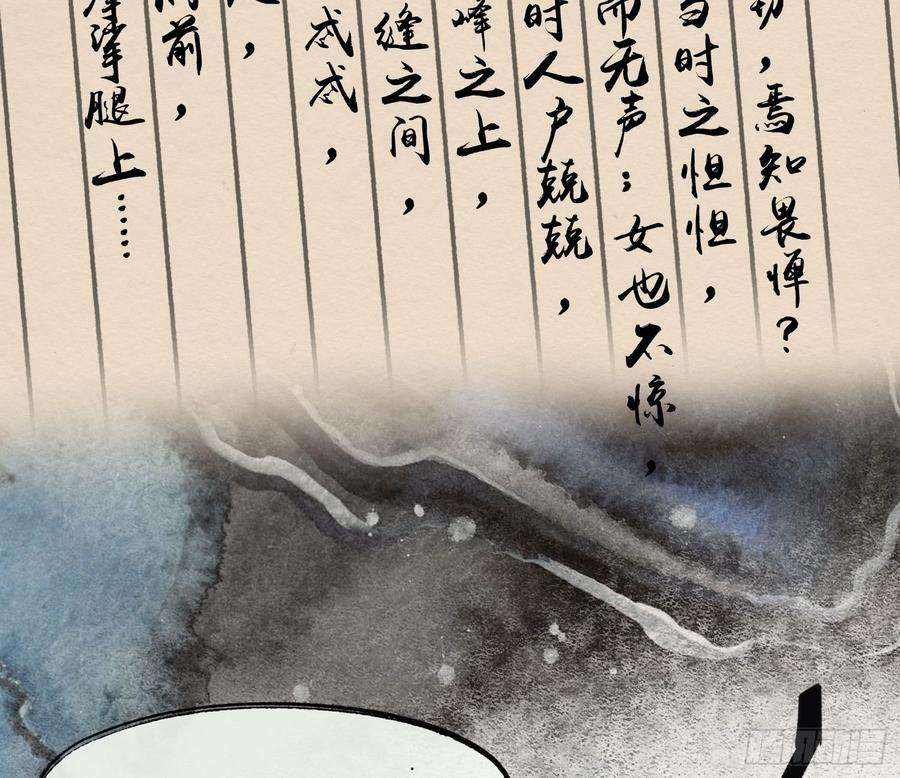 切，焉知畏惮？
当时之怛怛，
而无声；女也不惊，
时人户兢兢，
峰之上，
缝之间，
忒忒，
，
前，
摩挲腿上……